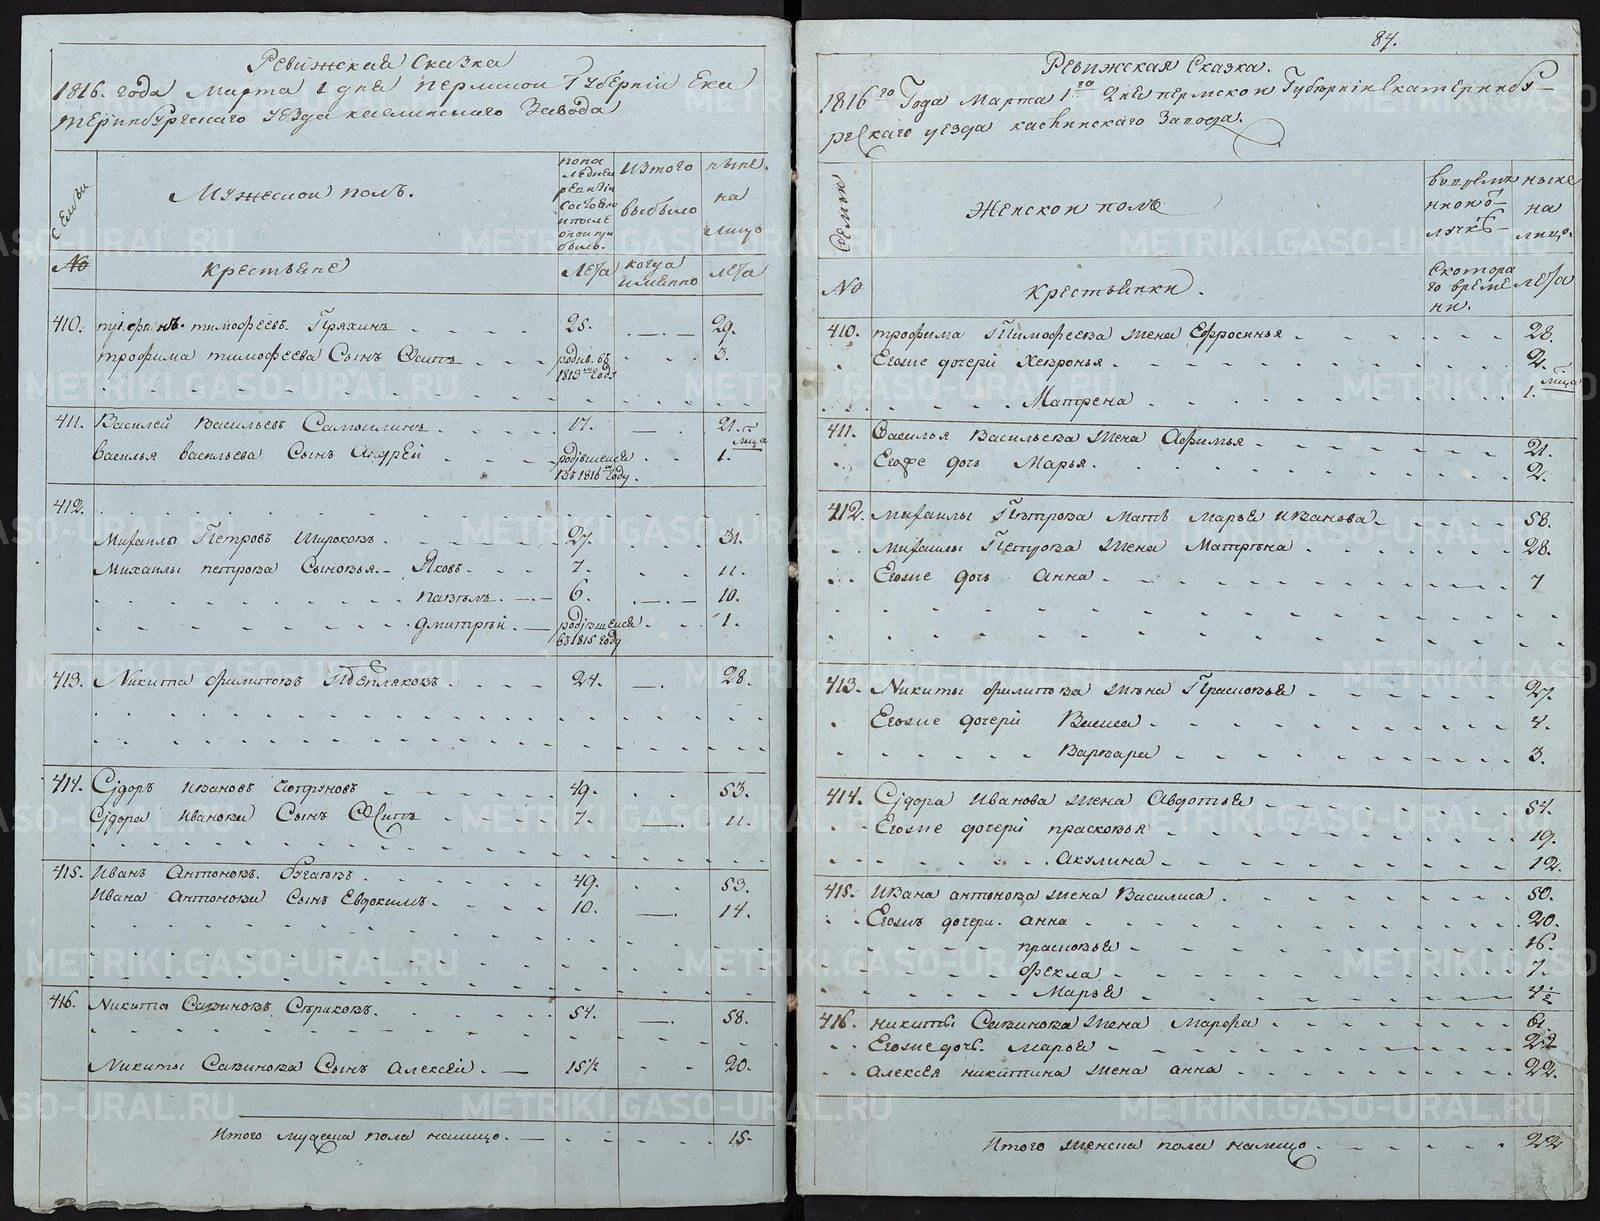 Ревижская Сказка
1816. года Марта 1 дня пермской Губерніи Ека
теринбургскаго уезда каслинскаго Завода
семьи
Мужеской полъ.
попос
ледней
ревизіи
состояло
и после
оной при
было.
изтого
выбыло
ныне
на
лицо
№
крестьяне
Лета
когда
имянно
лета
410. Тимофеевъ Пряхинъ 25. 29.
трофима тимофеева Сынъ Осипъ родив. въ 3.
1813 м Годе
411. Василей Васильевъ Самойлинъ 17. 21.
лица
василья васильева Сынъ Андрей родившейся 1.
въ 1816 м Году.
412.
Михаило Петровъ Широковъ 27. 31.
Михаилы петрова Сыновья Яковъ 7. 11.
павелъ 6. 10.
дмитрей родившейся 1.
въ 1815 году
413. Никита филиповъ Тепляковъ 24. 28.
414. Сидоръ ивановъ 49. 53.
Сидора иванова Сынъ Осипъ 7. 11.
415. Иванъ Антоновъ 49. 53.
Ивана Антонова Сынъ Евдокимъ 10. 14.
416. Никита Савиновъ Стриковъ 54. 58.
Никиты Савинова Сынъ Алексей 15½ 20.
Итого мужеска пола налицо 15.
84.
Ревижская Сказка.
1816 го Года Марта 1 го дня пермской Губерніи Екатеринбу
ргскаго уезда каслинскаго Завода.
Семьи
Женской полъ
вовремян
ной от
лучке
ныне
на
лицо.
№
крестьянки.
Скотора
го време
ни.
лета
410. трофима Тимофеева жена Ефросинья 28.
Егоже дочери Хевронья 2.
лица
Матрена 1.
411. Василья Васильева жена Афимья 21.
Егоже дочь Марья 2.
412. Михаилы Петрова мать Марья иванова 58.
Михаилы Петрова жена Матрена 28.
Егоже дочь Анна 7
413. Никиты филипова жена Прасковья 27.
Егоже дочери 4.
Варвара 3.
414. Сидора Иванова жена Авдотья 54.
Егоже дочери прасковья 19.
Акулина 12.
415. Ивана антонова жена Василиса 50.
Егожъ дочери анна 20.
прасковья 16.
фекла 7.
Марья 4½
416. никиты Савинова жена Марфа 61.
Егоже дочь. Марья 22
Алексея никитина жена анна 22.
Итого женска пола налицо 22
METRIKI.GASO-URAL.RU